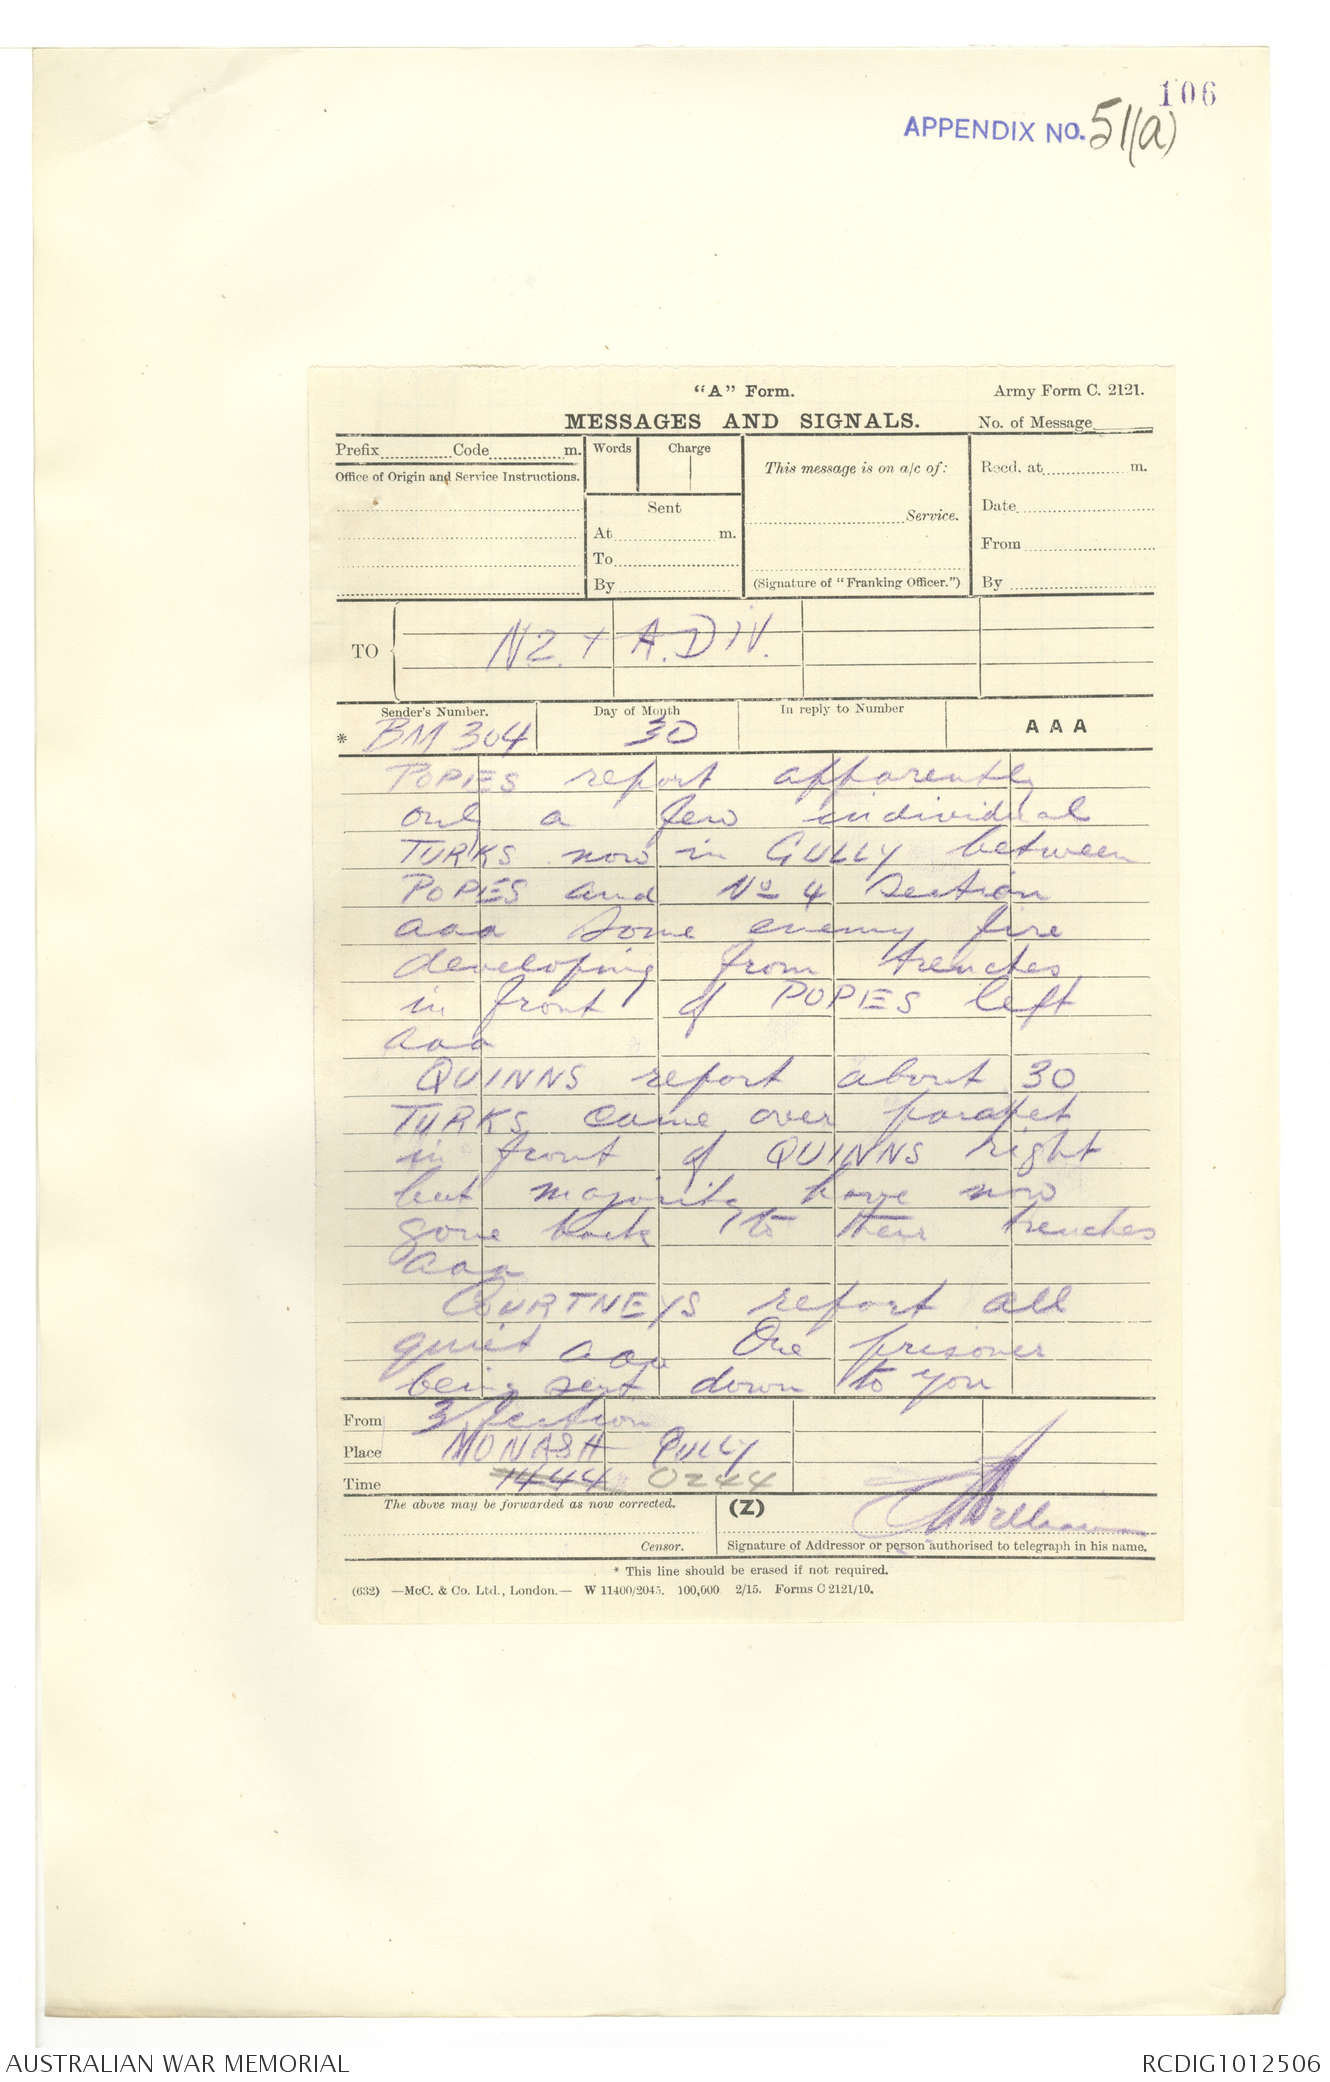 106
APPENDIX NO. 51(a)
"A" Form.
Army Form C. 2121.
MESSAGES AND SIGNALS.
No. of Message
Prefix Code m.
Words Charge
This message is on a/c of:
Recd. at m.
Office of Origin and Service Instructions.
Sent
Service.
Date
At m.
From
To
By
(Signature of "Franking Officer.")
By
TO
NZ. + A. DIV.
Sender's Number.
Day of Month
In reply to Number
AAA
* BM 304
30
POPIES report apparently
only a few individual
TURKS now in GULLY between
POPIES and No 4 Section
aaa Some enemy fire
developing from trenches
in front of POPIES left
aaa
QUINNS report about 30
TURKS came over parapet
in front of QUINNS right
but majority have now
gone back to their trenches
aaa
COURTNEYS report all
quiet aaa One prisoner
being sent down to you
From 3 Section
Place MONASH GULLY
Time 1444 0244
The above may be forwarded as now corrected.
(Z)
Censor.
Signature of Addressor or person authorised to telegraph in his name.
* This line should be erased if not required.
(632) —McC. & Co. Ltd., London.— W 11400/2045. 100,000 2/15. Forms C 2121/10.
AUSTRALIAN WAR MEMORIAL
RCDIG1012506